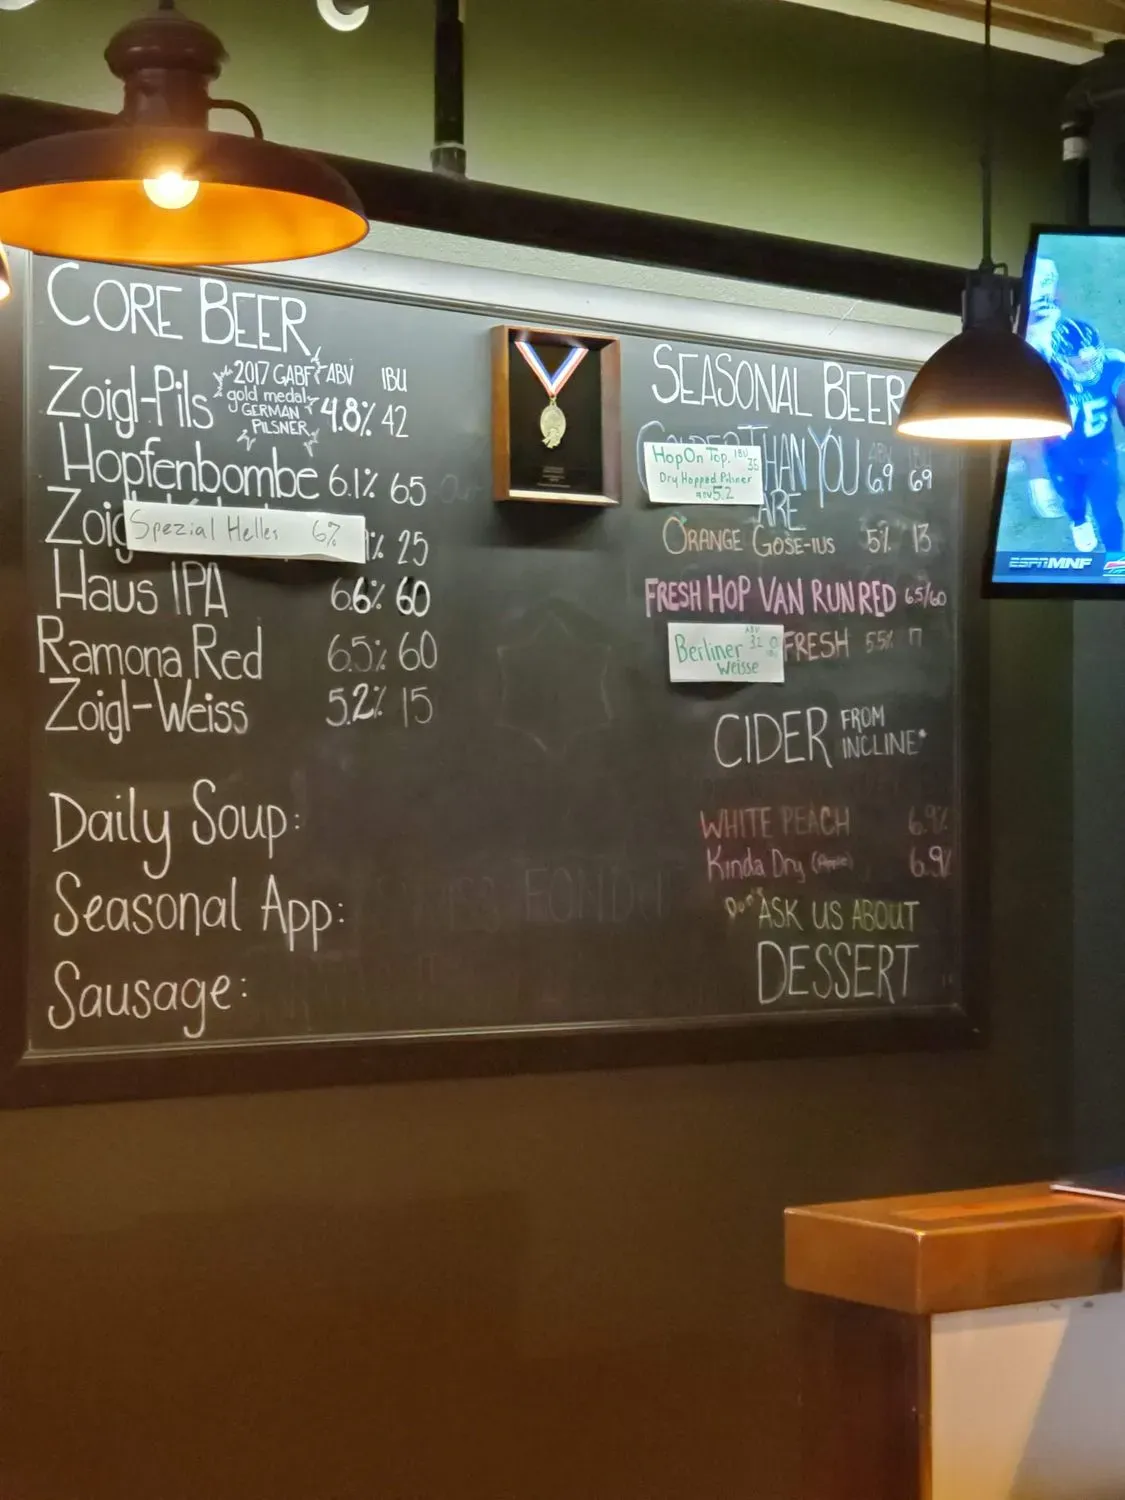 CORE BEER
Zoigl-Pils 2017 GABF gold medal GERMAN PILSNER ABV 4.8% IBU 42
Hopfenbombe 6.1% 65
Zoig Spezial Helles 6% % 25
Haus IPA 6.6% 60
Ramona Red 6.5% 60
Zoigl-Weiss 5.2% 15
Daily Soup:
Seasonal App:
Sausage:
SEASONAL BEER
THAN YOU 6.9 69
ARE
Hop On Top. IBU 35
Dry Hopped Pilsner
ABV 5.2
ORANGE GOSE-IUS 5% 13
FRESH HOP VAN RUN RED 6.5/60
Berliner Weisse ABV 3.2
FRESH 5.5% 17
CIDER FROM INCLINE*
WHITE PEACH 6.9%
Kinda Dry (Apple) 6.9%
ASK US ABOUT
DESSERT
ESPN MNF